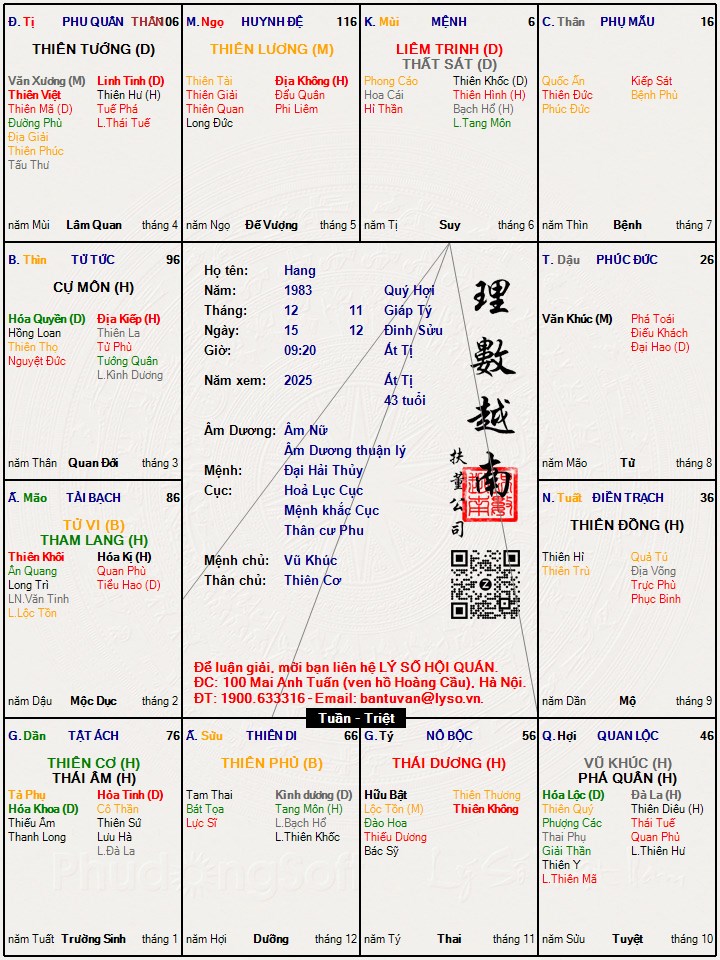 Đ. Tị PHU QUÂN THÂN 106
THIÊN TƯỚNG (D)
Văn Xương (M) Linh Tinh (D)
Thiên Việt Thiên Hư (H)
Thiên Mã (D) Tuế Phá
Đường Phù L.Thái Tuế
Địa Giải
Thiên Phúc
Tấu Thư
năm Mùi Lâm Quan tháng 4
M. Ngọ HUYNH ĐỆ 116
THIÊN LƯƠNG (M)
Thiên Tài Địa Không (H)
Thiên Giải Đẩu Quân
Thiên Quan Phi Liêm
Long Đức
năm Ngọ Đế Vượng tháng 5
K. Mùi MỆNH 6
LIÊM TRINH (D)
THẤT SÁT (D)
Phong Cáo Thiên Khốc (D)
Hoa Cái Thiên Hình (H)
Hỉ Thần Bạch Hổ (H)
L.Tang Môn
năm Tị Suy tháng 6
C. Thân PHỤ MẪU 16
Quốc Ấn Kiếp Sát
Thiên Đức Bệnh Phù
Phúc Đức
năm Thìn Bệnh tháng 7
B. Thìn TỬ TỨC 96
CỰ MÔN (H)
Hóa Quyền (D) Địa Kiếp (H)
Hồng Loan Thiên La
Thiên Thọ Tử Phù
Nguyệt Đức Tướng Quân
L.Kình Dương
năm Thân Quan Đới tháng 3
Họ tên: Hang
Năm: 1983 Quý Hợi
Tháng: 12 11 Giáp Tý
Ngày: 15 12 Đinh Sửu
Giờ: 09:20 Ất Tị
Năm xem: 2025 Ất Tị
43 tuổi
Âm Dương: Âm Nữ
Âm Dương thuận lý
Mệnh: Đại Hải Thủy
Cục: Hoả Lục Cục
Mệnh khắc Cục
Thân cư Phu
Mệnh chủ: Vũ Khúc
Thân chủ: Thiên Cơ
理數越南
扶董公司
Để luận giải, mời bạn liên hệ LÝ SỐ HỘI QUÁN.
ĐC: 100 Mai Anh Tuấn (ven hồ Hoàng Cầu), Hà Nội.
ĐT: 1900.633316 - Email: bantuvan@lyso.vn.
T. Dậu PHÚC ĐỨC 26
Văn Khúc (M) Phá Toái
Điếu Khách
Đại Hao (D)
năm Mão Tử tháng 8
Ấ. Mão TÀI BẠCH 86
TỬ VI (B)
THAM LANG (H)
Thiên Khôi Hóa Kị (H)
Ân Quang Quan Phù
Long Trì Tiểu Hao (D)
LN.Văn Tinh
L.Lộc Tồn
năm Dậu Mộc Dục tháng 2
N. Tuất ĐIỀN TRẠCH 36
THIÊN ĐỒNG (H)
Thiên Hỉ Quả Tú
Thiên Trù Địa Võng
Trực Phù
Phục Binh
năm Dần Mộ tháng 9
Tuần - Triệt
G. Dần TẬT ÁCH 76
THIÊN CƠ (H)
THÁI ÂM (H)
Tả Phụ Hỏa Tinh (D)
Hóa Khoa (D) Cô Thần
Thiếu Âm Thiên Sứ
Thanh Long Lưu Hà
L.Đà La
năm Tuất Trường Sinh tháng 1
Ấ. Sửu THIÊN DI 66
THIÊN PHỦ (B)
Tam Thai Kình dương (D)
Bát Tọa Tang Môn (H)
Lực Sĩ L.Bạch Hổ
L.Thiên Khốc
năm Hợi Dưỡng tháng 12
G. Tý NÔ BỘC 56
THÁI DƯƠNG (H)
Hữu Bật Thiên Thương
Lộc Tồn (M) Thiên Không
Đào Hoa
Thiếu Dương
Bác Sỹ
năm Tý Thai tháng 11
Q. Hợi QUAN LỘC 46
VŨ KHÚC (H)
PHÁ QUÂN (H)
Hóa Lộc (D) Đà La (H)
Thiên Quý Thiên Diêu (H)
Phượng Các Thái Tuế
Thai Phụ Quan Phủ
Giải Thần L.Thiên Hư
Thiên Y
L.Thiên Mã
năm Sửu Tuyệt tháng 10